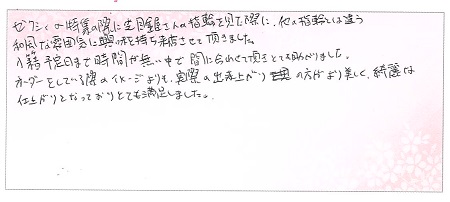 ゼクシィの特集の際に杢目銀さんの指輪を見た際に、他の指輪とは違う
和風な雰囲気に興味を持ち来店させて頂きました。
入籍予定日まで時間が無い中で間に合わせて頂きとても助かりました。
オーダーをしている際のイメージよりも、実際の出来上がりの方がより美しく、綺麗な
仕上がりとなっておりとても満足しました。